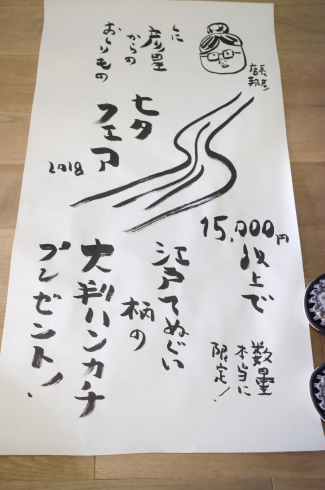 店長
彦星
からの
おくりもの
七夕
フェア
2018
15,000円
以上で
江戸てぬぐい
柄の
大判ハンカチ
プレゼント!
数量
本当に
限定!